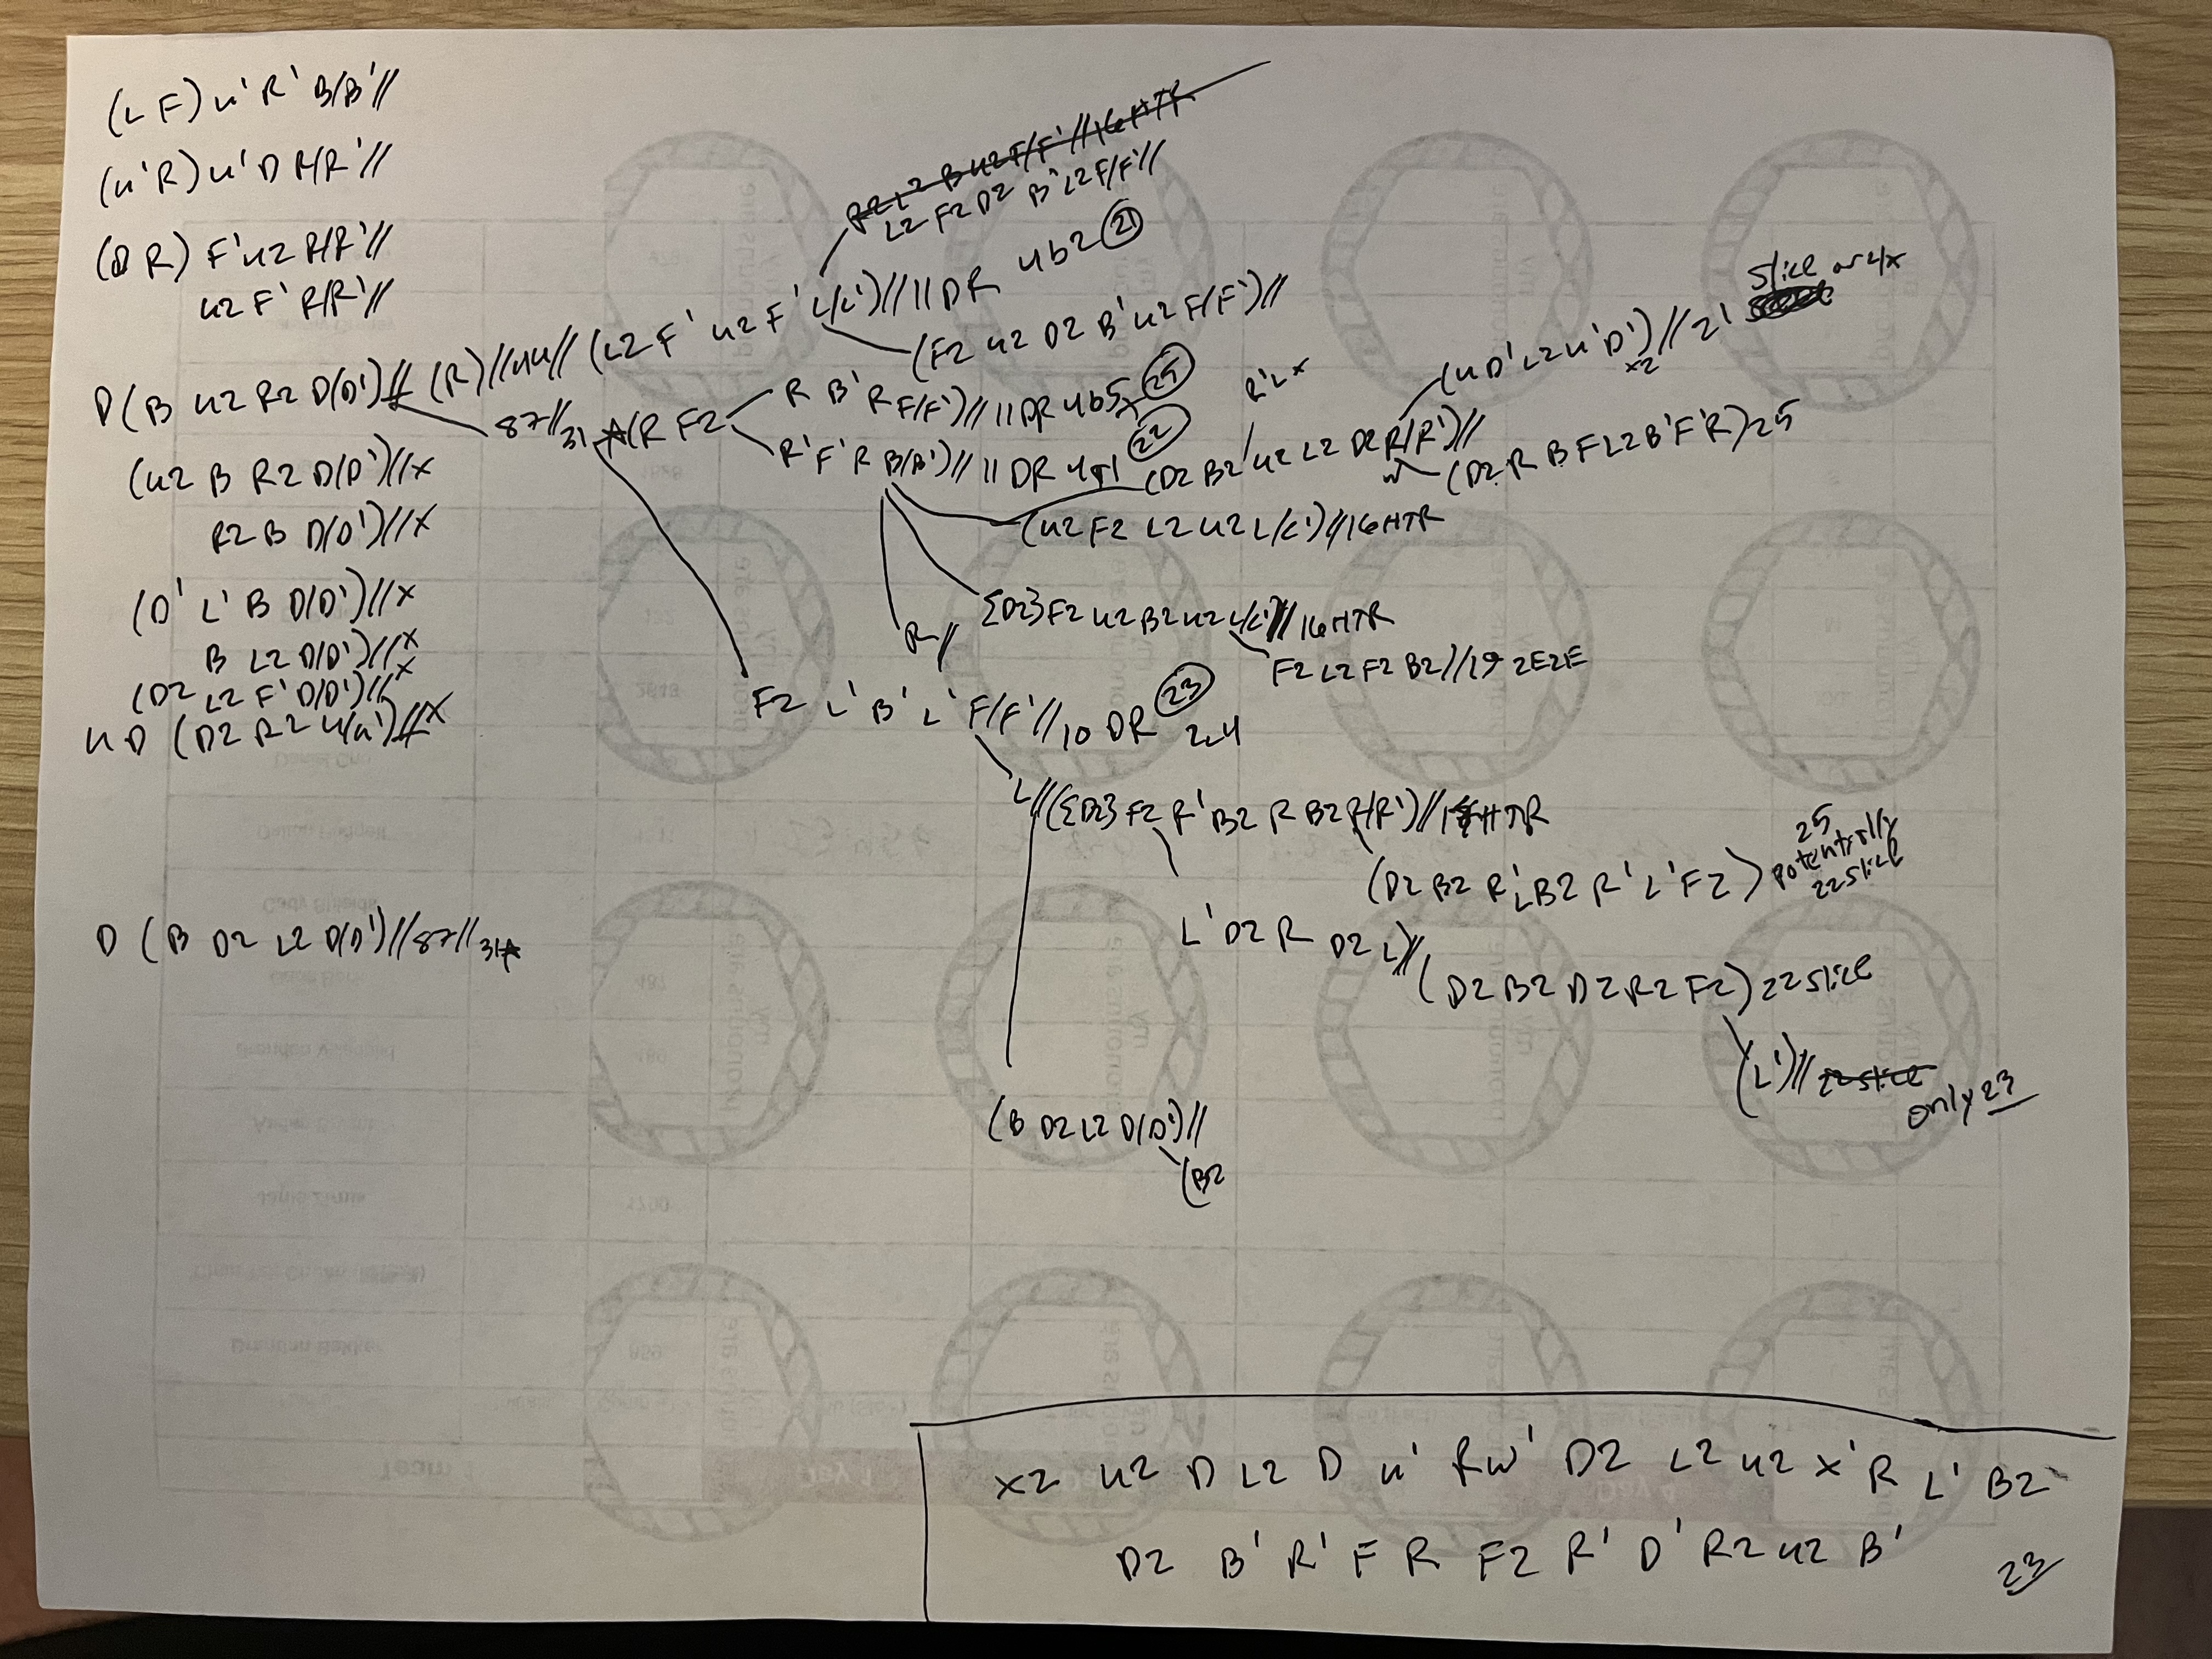 (L F) u' R' B/B'//
(u' R) u' D R/R'//
(D R) F' u2 R/R'//
u2 F' R/R'//
R2 L2 B u2 F/F' // 16 HTR
L2 F2 D2 B' L2 F/F'//
D (B u2 R2 D/D')// (R) // 4u // (L2 F' u2 F' L/L') // 11 DR 4b2 (21)
(F2 u2 D2 B' u2 F/F')//
87// 31 (R F2
R B' R F/F') // 11 DR 4b5 (25)
R' F' R B/B') // 11 DR (22)
(D2 B2 u2 L2 D2 R/R')//
R'L x
(u D' L2 u' D') // 21 slice or 4x
x2
(D2 R B F L2 B' F' R) 25
(u2 F2 L2 u2 L/L') // 16 HTR
{D2} F2 u2 B2 u2 L/L' // 16 HTR
F2 L2 F2 B2) // 19 2E2E
R //
(u2 B R2 D/D') // x
R2 B D/D') // x
(D' L' B D/D') // x
B L2 D/D') // x
(D2 L2 F' D/D') // x
u D (D2 R2 u/u') // x
F2 L' B' L' F/F' // 10 DR (23)
L // ({D2} F2 R' B2 R B2 R/R') // HTR
(D2 B2 R' L B2 R' L' F2) 25 potentially 22 slice
L' D2 R D2 L) //
(D2 B2 D2 R2 F2) 22 slice
(L') // 22 slice only 23
D (B D2 L2 D/D') // 87 // 31
(B D2 L2 D/D') //
(B2
x2 u2 D L2 D u' Rw' D2 L2 u2 x' R L' B2
D2 B' R' F R F2 R' D' R2 u2 B'
23